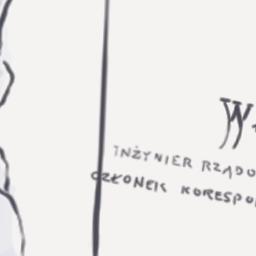 W
INŻYNIER RZĄDO
CZŁONEK KORESPO